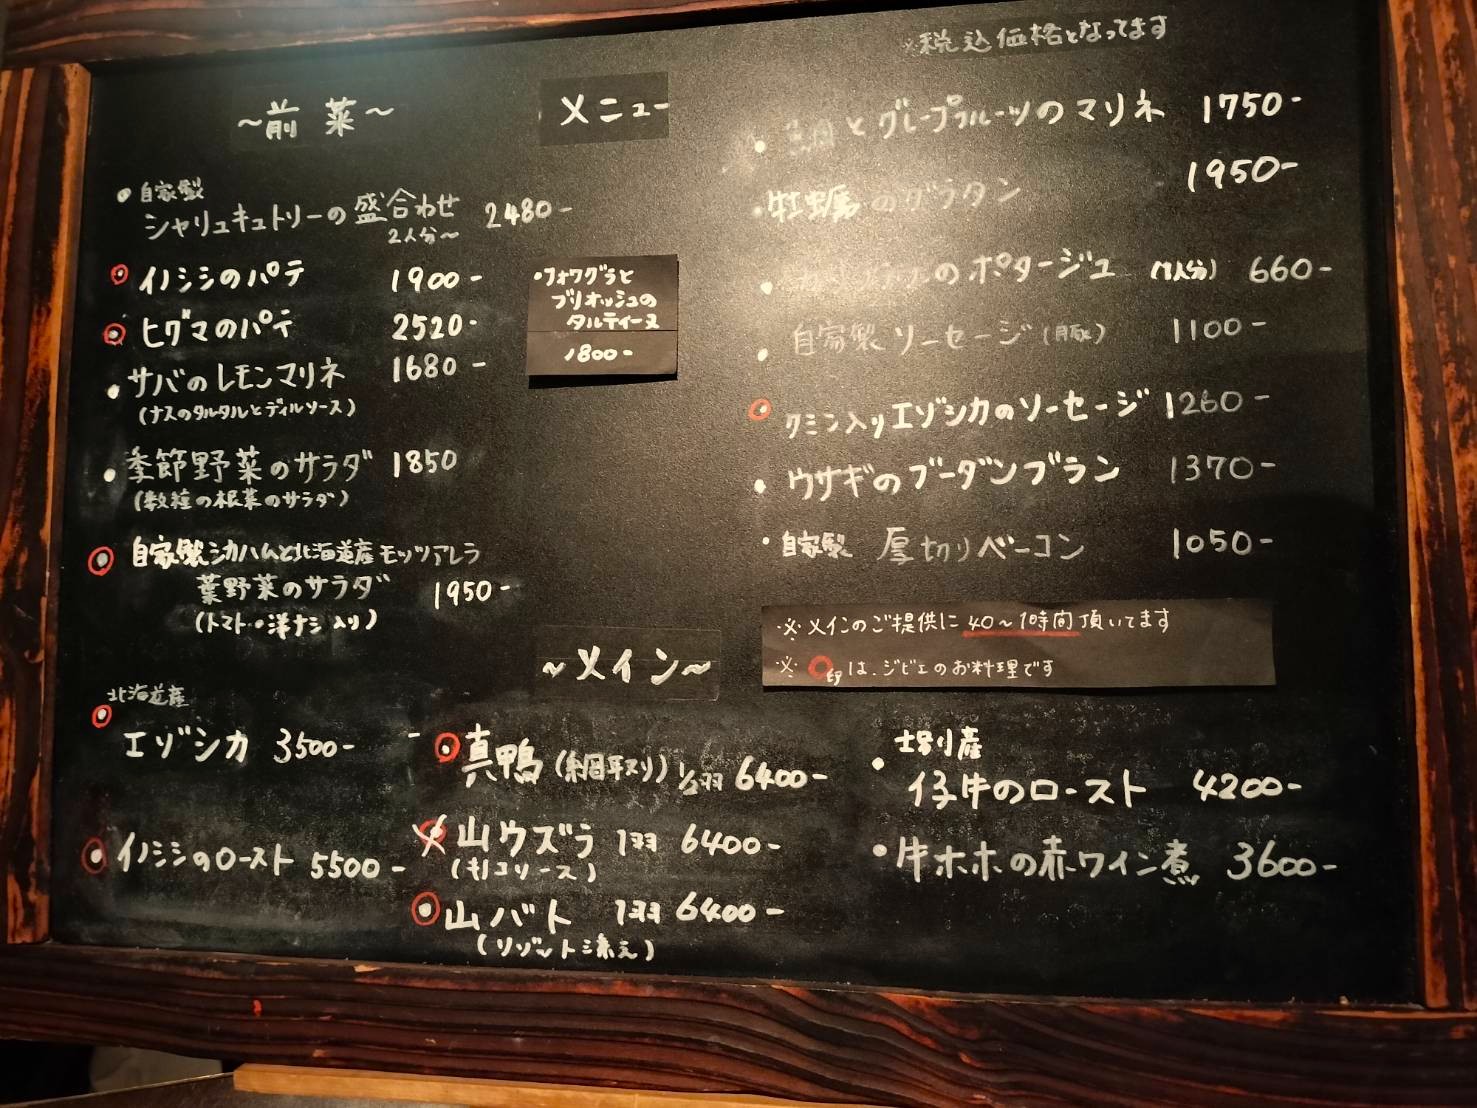 ※税込価格となってます
メニュー
～前菜～
・自家製
シャリュキュトリーの盛合わせ 2480-
2人分～
イノシシのパテ 1900-
ヒグマのパテ 2520-
・サバのレモンマリネ 1680-
(ナスのタルタルとディルソース)
・季節野菜のサラダ 1850
(数種の根菜のサラダ)
自家製シカハムと北海道産モッツァレラ
葉野菜のサラダ 1950-
(トマト・洋ナシ入り)
・フォワグラと
ブリオッシュの
タルティーヌ
1800-
・とグレープフルーツのマリネ 1750-
・牡蠣のグラタン 1950-
・のポタージュ (1人分) 660-
・自家製ソーセージ(豚) 1100-
クミン入りエゾシカのソーセージ 1260-
・ウサギのブーダンブラン 1370-
・自家製 厚切りベーコン 1050-
※メインのご提供に40～1時間頂いてます
※○印は、ジビエのお料理です
～メイン～
北海道産
エゾシカ 3500-
イノシシのロースト 5500-
真鴨(網取り) 1/2羽 6400-
山ウズラ 1羽 6400-
山バト 1羽 6400-
(リゾット添え)
・士別産
仔牛のロースト 4200-
・牛ホホの赤ワイン煮 3600-